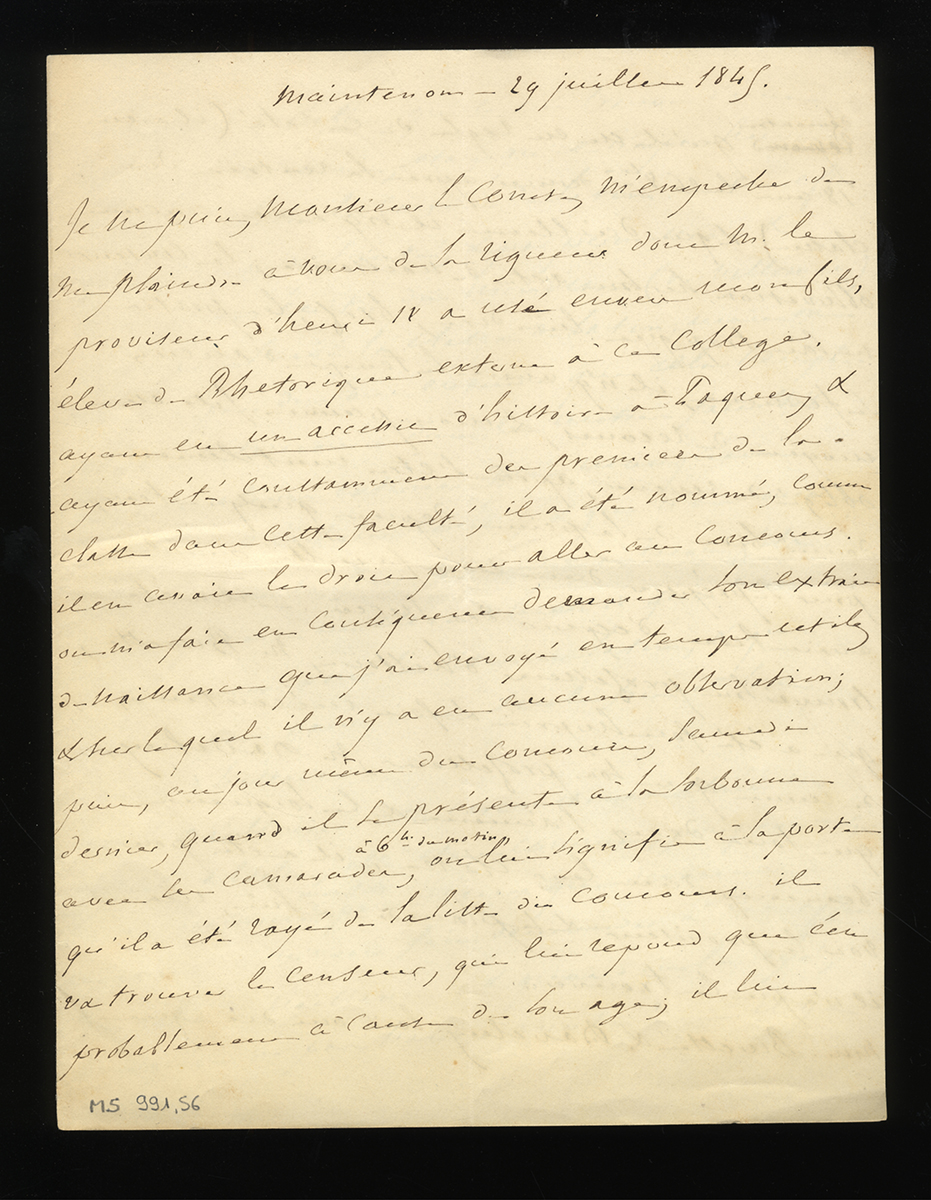 Maintenon – 29 juillet 1845.
Je ne puis, Monsieur le Comte, m'empecher de
me plaindre à vous de la rigueur dont M. le
proviseur d'henri IV a usé envers mon fils,
éleve de Rhetorique externe à ce College.
ayant eu un accessit d'histoire à Paques, &
ayant été constamment des premiers de la
classe dans cette faculté, il a été nommé, comme
il en avait le droit pour aller au Concours.
on m'a fait en conséquence demander son extrait
de naissance que j'ai envoyé en temps utile,
& sur lequel il n'y a eu aucune observation;
puis, au jour même du concours, Samedi
dernier, quand il se présente à la Sorbonne
à 6 h. du matin
avec ses camarades, on lui signifie à la porte
qu'il a été rayé de la liste du concours. il
va trouver le censeur, qui lui repond que c'est
probablement à cause de son age; il lui
MS 991,56